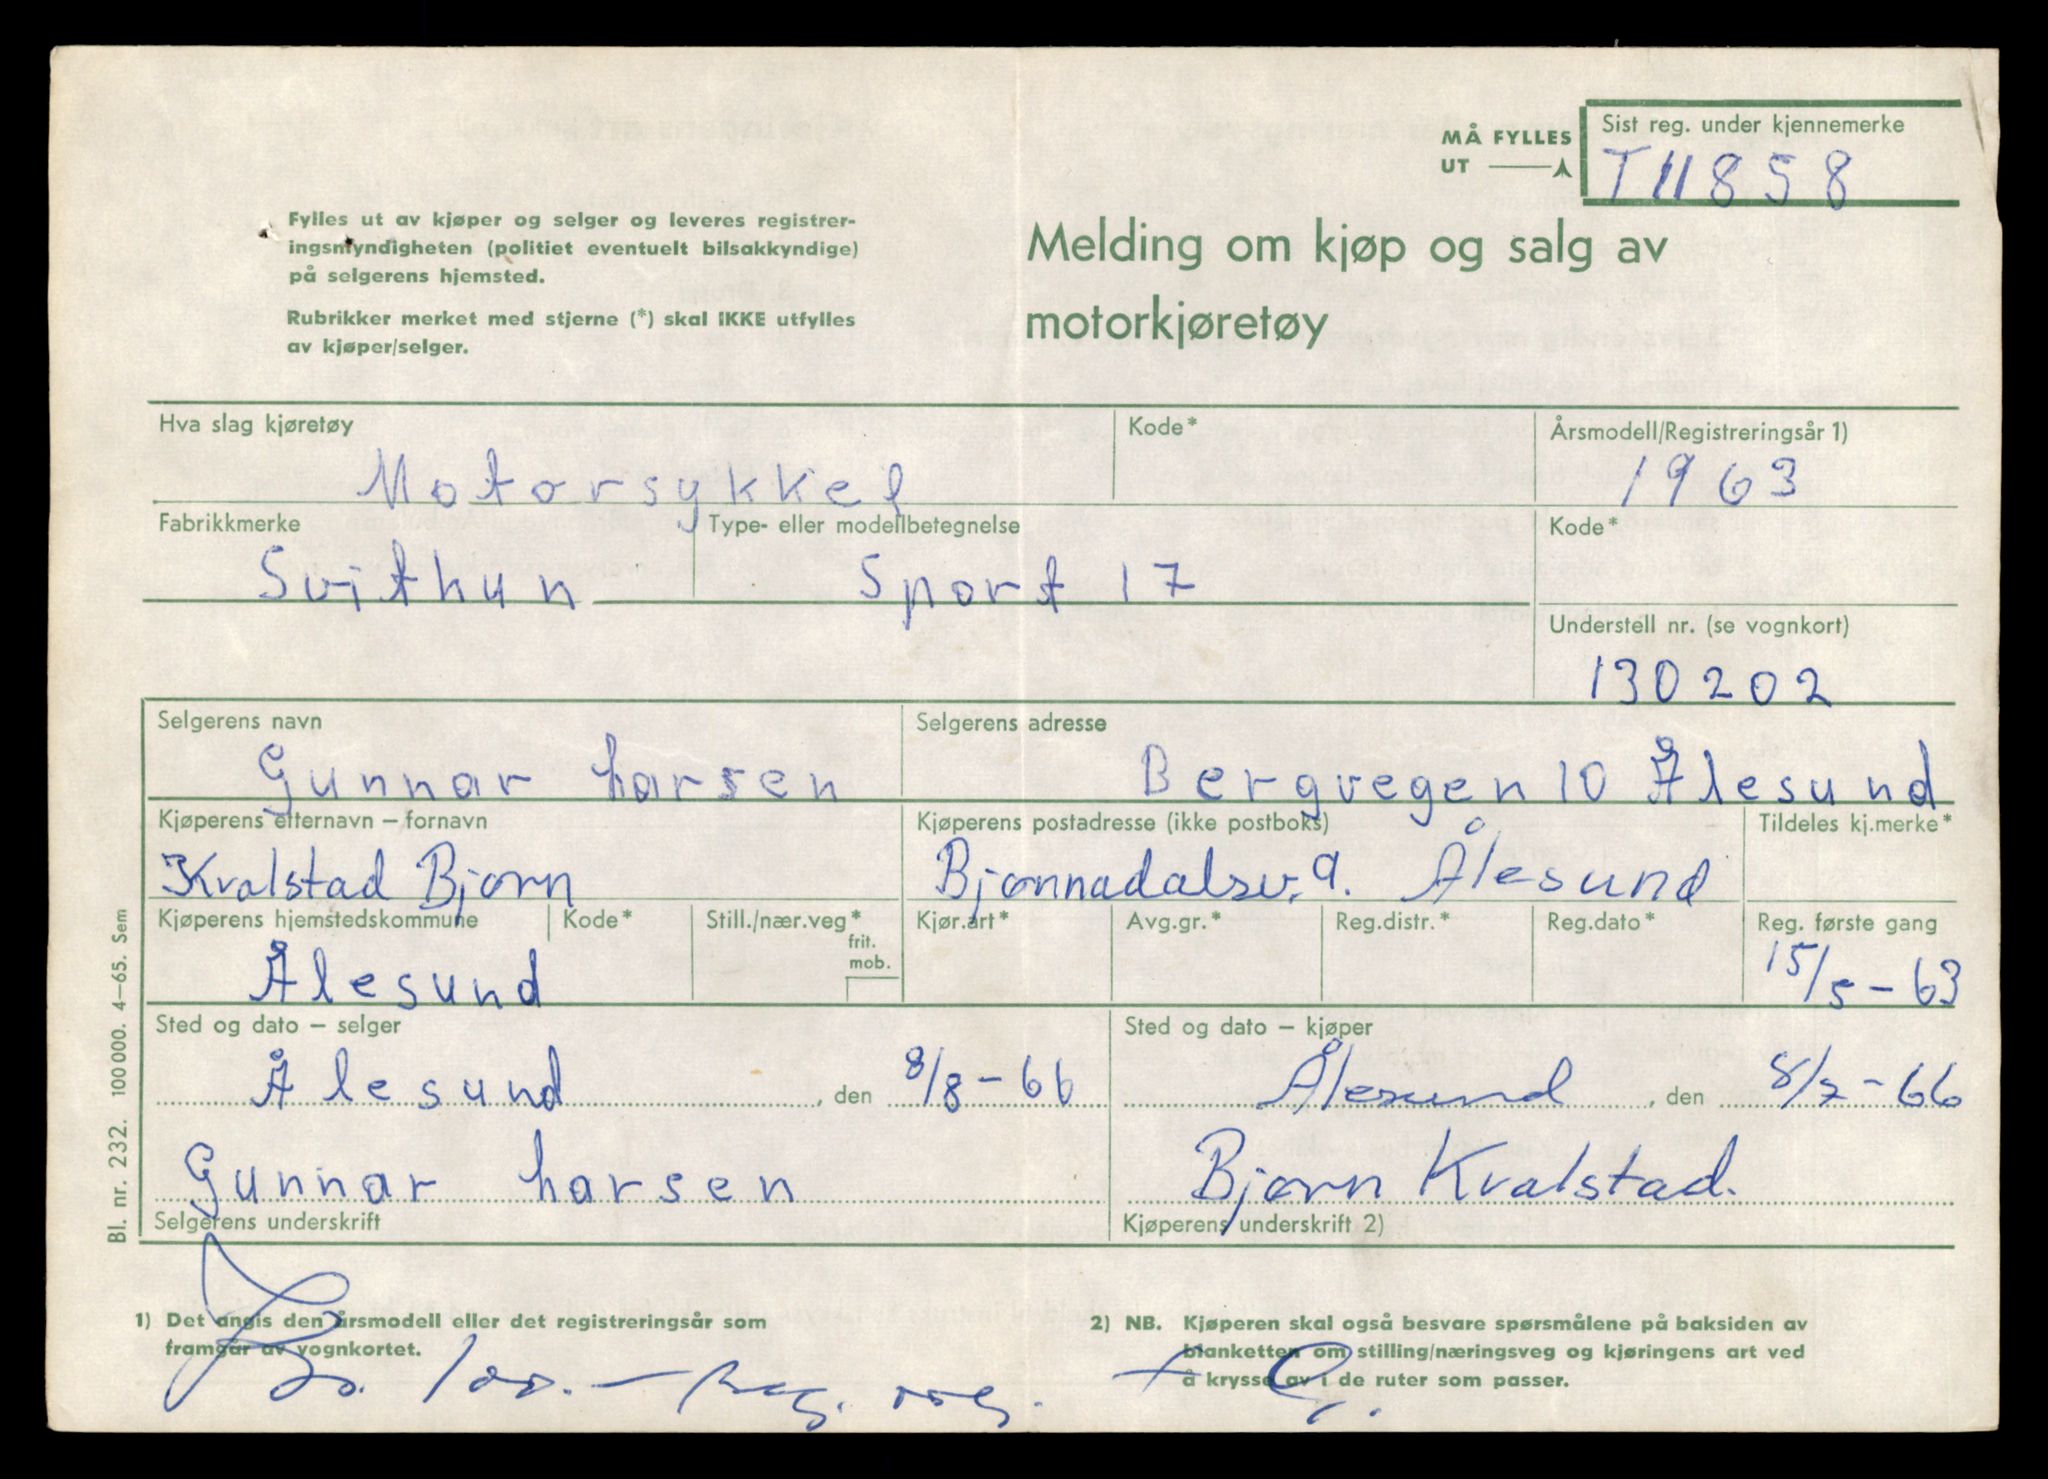 MÅ FYLLES
UT
Sist reg. under kjennemerke
T11858
Fylles ut av kjøper og selger og leveres registrer-
ingsmyndigheten (politiet eventuelt bilsakkyndige)
på selgerens hjemsted.
Rubrikker merket med stjerne (*) skal IKKE utfylles
av kjøper/selger.
Melding om kjøp og salg av
motorkjøretøy
Hva slag kjøretøy
Motorsykkel
Kode*
Årsmodell/Registreringsår 1)
1963
Fabrikkmerke
Svithun
Type- eller modellbetegnelse
Sport 17
Kode*
Understell nr. (se vognkort)
130202
Selgerens navn
Gunnar Larsen
Selgerens adresse
Bergvegen 10 Ålesund
Kjøperens etternavn – fornavn
Kvalstad Bjørn
Kjøperens postadresse (ikke postboks)
Bjønnadalsv. 9. Ålesund
Tildeles kj.merke*
Kjøperens hjemstedskommune
Ålesund
Kode*
Still./nær.veg*
frit.
mob.
Kjør.art*
Avg.gr.*
Reg.distr.*
Reg.dato*
Reg. første gang
15/5-63
Sted og dato – selger
Ålesund, den 8/8-66
Sted og dato – kjøper
Ålesund, den 8/7-66
Gunnar Larsen
Selgerens underskrift
Bjørn Kvalstad.
Kjøperens underskrift 2)
Bl. nr. 232. 100 000. 4–65. Sem
1) Det angis den årsmodell eller det registreringsår som
framgår av vognkortet.
2) NB. Kjøperen skal også besvare spørsmålene på baksiden av
blanketten om stilling/næringsveg og kjøringens art ved
å krysse av i de ruter som passer.